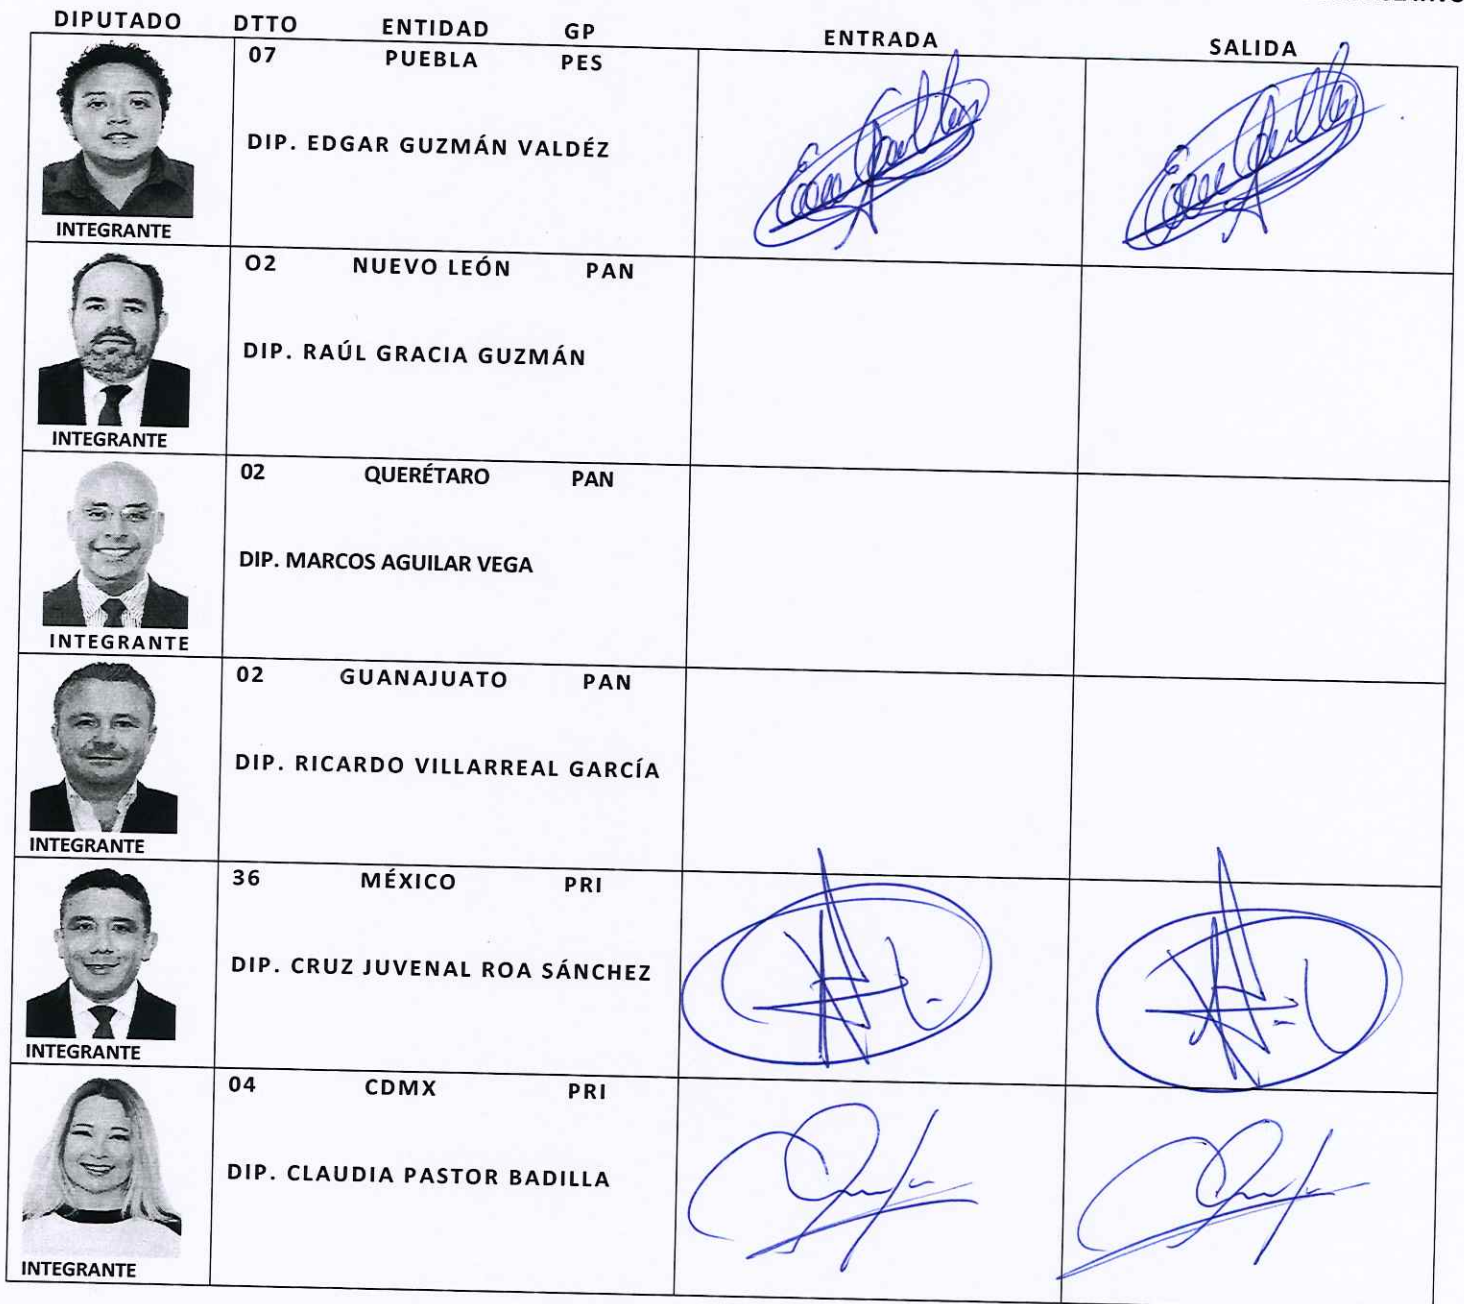 DIPUTADO DTTO ENTIDAD GP ENTRADA SALIDA
07 PUEBLA PES
DIP. EDGAR GUZMÁN VALDÉZ
INTEGRANTE
O2 NUEVO LEÓN PAN
DIP. RAÚL GRACIA GUZMÁN
INTEGRANTE
02 QUERÉTARO PAN
DIP. MARCOS AGUILAR VEGA
INTEGRANTE
02 GUANAJUATO PAN
DIP. RICARDO VILLARREAL GARCÍA
INTEGRANTE
36 MÉXICO PRI
DIP. CRUZ JUVENAL ROA SÁNCHEZ
INTEGRANTE
04 CDMX PRI
DIP. CLAUDIA PASTOR BADILLA
INTEGRANTE